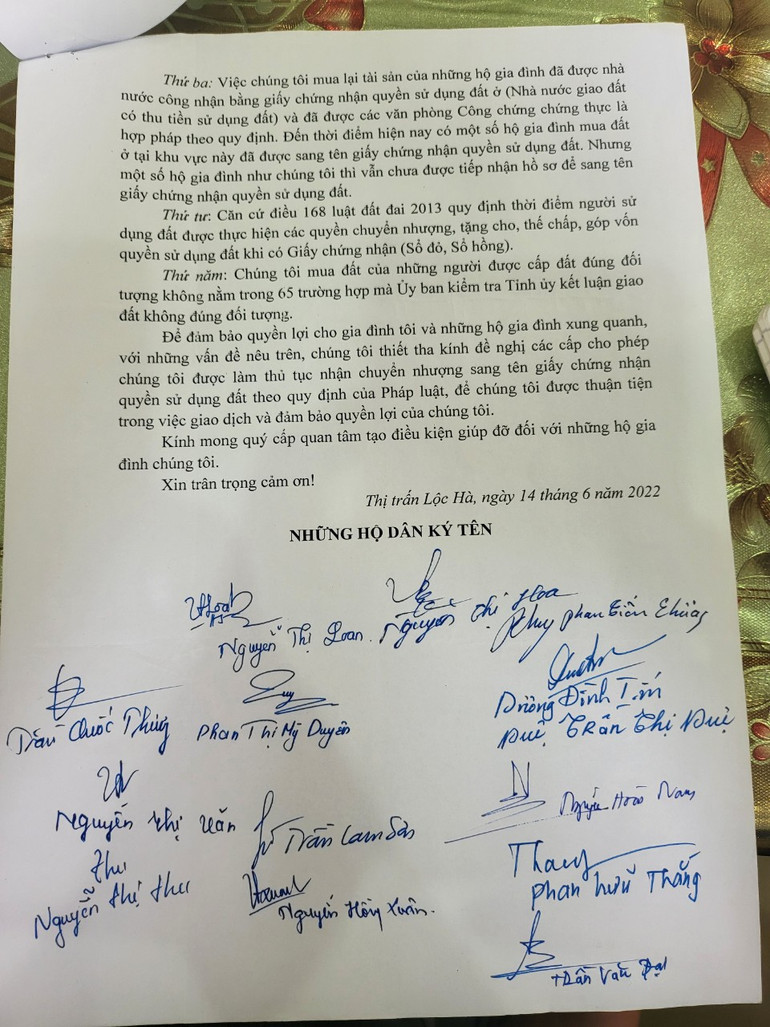 Thứ ba: Việc chúng tôi mua lại tài sản của những hộ gia đình đã được nhà
nước công nhận bằng giấy chứng nhận quyền sử dụng đất ở (Nhà nước giao đất
có thu tiền sử dụng đất) và đã được các văn phòng Công chứng chứng thực là
hợp pháp theo quy định. Đến thời điểm hiện nay có một số hộ gia đình mua đất
ở tại khu vực này đã được sang tên giấy chứng nhận quyền sử dụng đất. Nhưng
một số hộ gia đình như chúng tôi thì vẫn chưa được tiếp nhận hồ sơ để sang tên
giấy chứng nhận quyền sử dụng đất.
Thứ tư: Căn cứ điều 168 luật đất đai 2013 quy định thời điểm người sử
dụng đất được thực hiện các quyền chuyển nhượng, tặng cho, thế chấp, góp vốn
quyền sử dụng đất khi có Giấy chứng nhận (Sổ đỏ, Sổ hồng).
Thứ năm: Chúng tôi mua đất của những người được cấp đất đúng đối
tượng không nằm trong 65 trường hợp mà Ủy ban kiểm tra Tỉnh ủy kết luận giao
đất không đúng đối tượng.
Để đảm bảo quyền lợi cho gia đình tôi và những hộ gia đình xung quanh,
với những vấn đề nêu trên, chúng tôi thiết tha kính đề nghị các cấp cho phép
chúng tôi được làm thủ tục nhận chuyển nhượng sang tên giấy chứng nhận
quyền sử dụng đất theo quy định của Pháp luật, để chúng tôi được thuận tiện
trong việc giao dịch và đảm bảo quyền lợi của chúng tôi.
Kính mong quý cấp quan tâm tạo điều kiện giúp đỡ đối với những hộ gia
đình chúng tôi.
Xin trân trọng cảm ơn!
Thị trấn Lộc Hà, ngày 14 tháng 6 năm 2022
NHỮNG HỘ DÂN KÝ TÊN
Nguyễn Thị Loan
Nguyễn Thị Hoa
Phan Tiến
Trần Quốc
Phan Thị Mỹ Duyên
Đình Tín
Duệ Trần Thị Duệ
Nguyễn Thị Vân
Trần Lam Sơn
Nguyễn Hoài Nam
Thu
Nguyễn Thị Thu
Nguyễn Hồng Xuân
Phan Hữu Thắng
Trần Văn Đạt